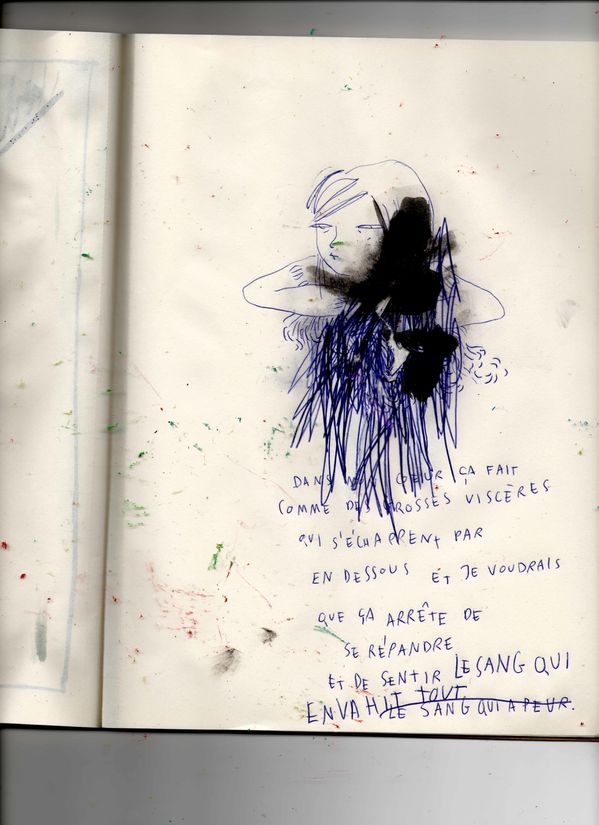 DANS MON CŒUR ÇA FAIT
COMME DES GROSSES VISCÈRES
QUI S'ÉCHAPPENT PAR
EN DESSOUS ET JE VOUDRAIS
QUE ÇA ARRÊTE DE
SE RÉPANDRE
ET DE SENTIR LE SANG QUI
ENVAHIT TOUT
LE SANG QUI A PEUR.